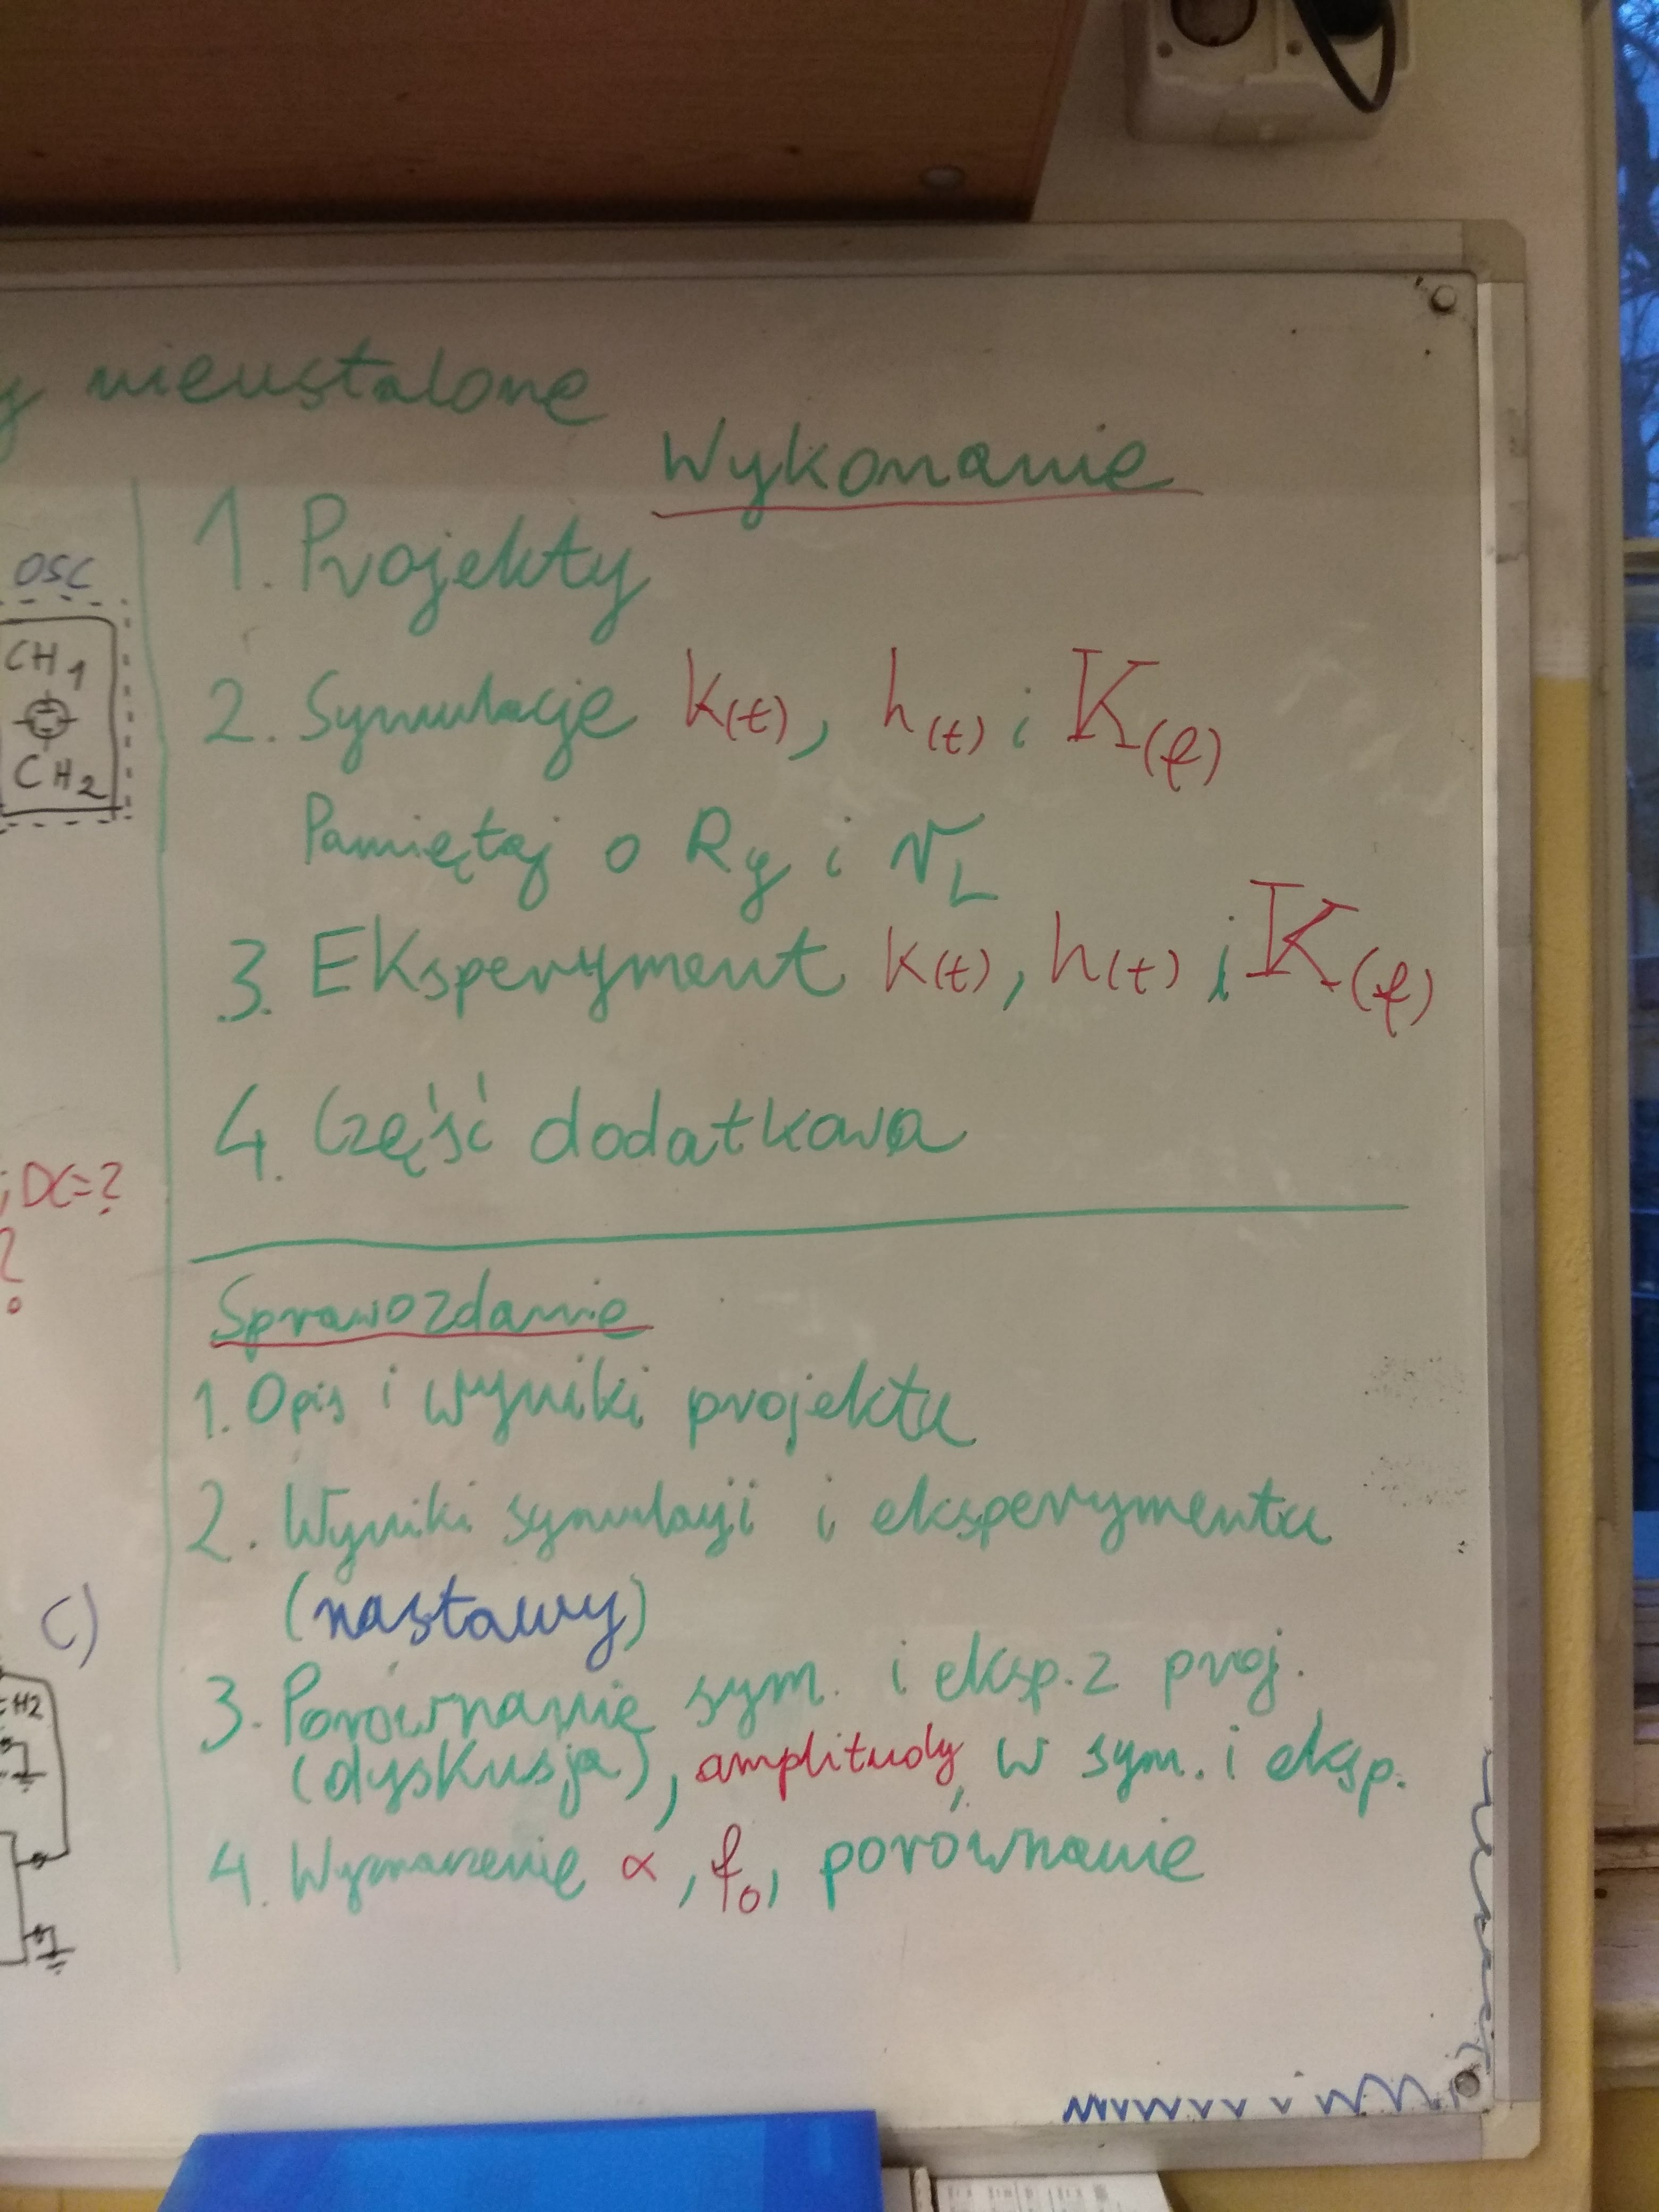 y nieustalone
Wykonanie
1. Projekty
2. Symulacje k(t), h(t) i K(f)
Pamiętaj o Rg i rL
3. Eksperyment k(t), h(t) i K(f)
4. Część dodatkowa
Sprawozdanie
1. Opis i wyniki projektu
2. Wyniki symulacji i eksperymentu
(nastawy)
3. Porównanie sym. i eksp. z proj.
(dyskusja), amplitudy w sym. i eksp.
4. Wyznaczenie α, f0, porównanie
OSC
CH1
CH2
; DC=?
?
C)
CH2